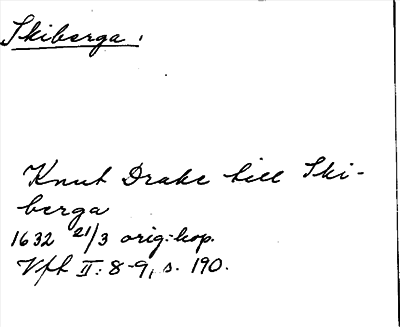 Skiberga.
Knut Drake till Ski-
berga
1632 21/3 orig:kop.
Vfh II:8-9, s. 190.